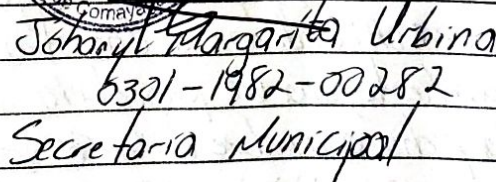 Comaya
Johanyl Margarita Urbina
0301-1982-00282
Secretaria Municipal